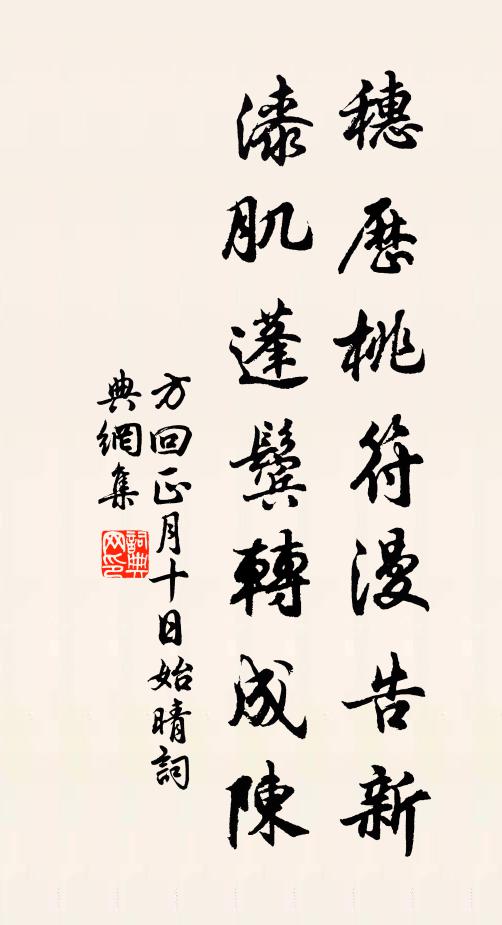 穗历桃符漫告新
漆肌蓬鬓轉成陳
方回正月十日始晴詞
典網集
詞典网印